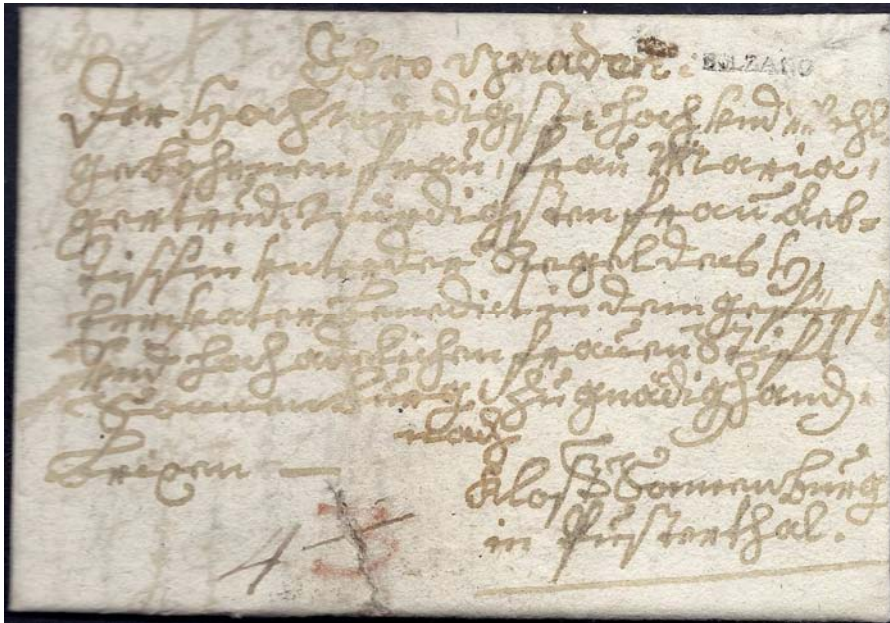 Ihro Gnaden. BOLZANO
Der Hochwürdigst: hoch und
gebohrnen Frau, Frau Maria
gertrud, Würdigsten Frau Aeb-
tissin unter der Regel des H:
Benedict in dem
und hoch adelichen Frauen Stifft
Sonnenburg, zu gnädig hand.
nach
Brixen —
Klost: Sonnenburg
in Pusterthal.
4 3